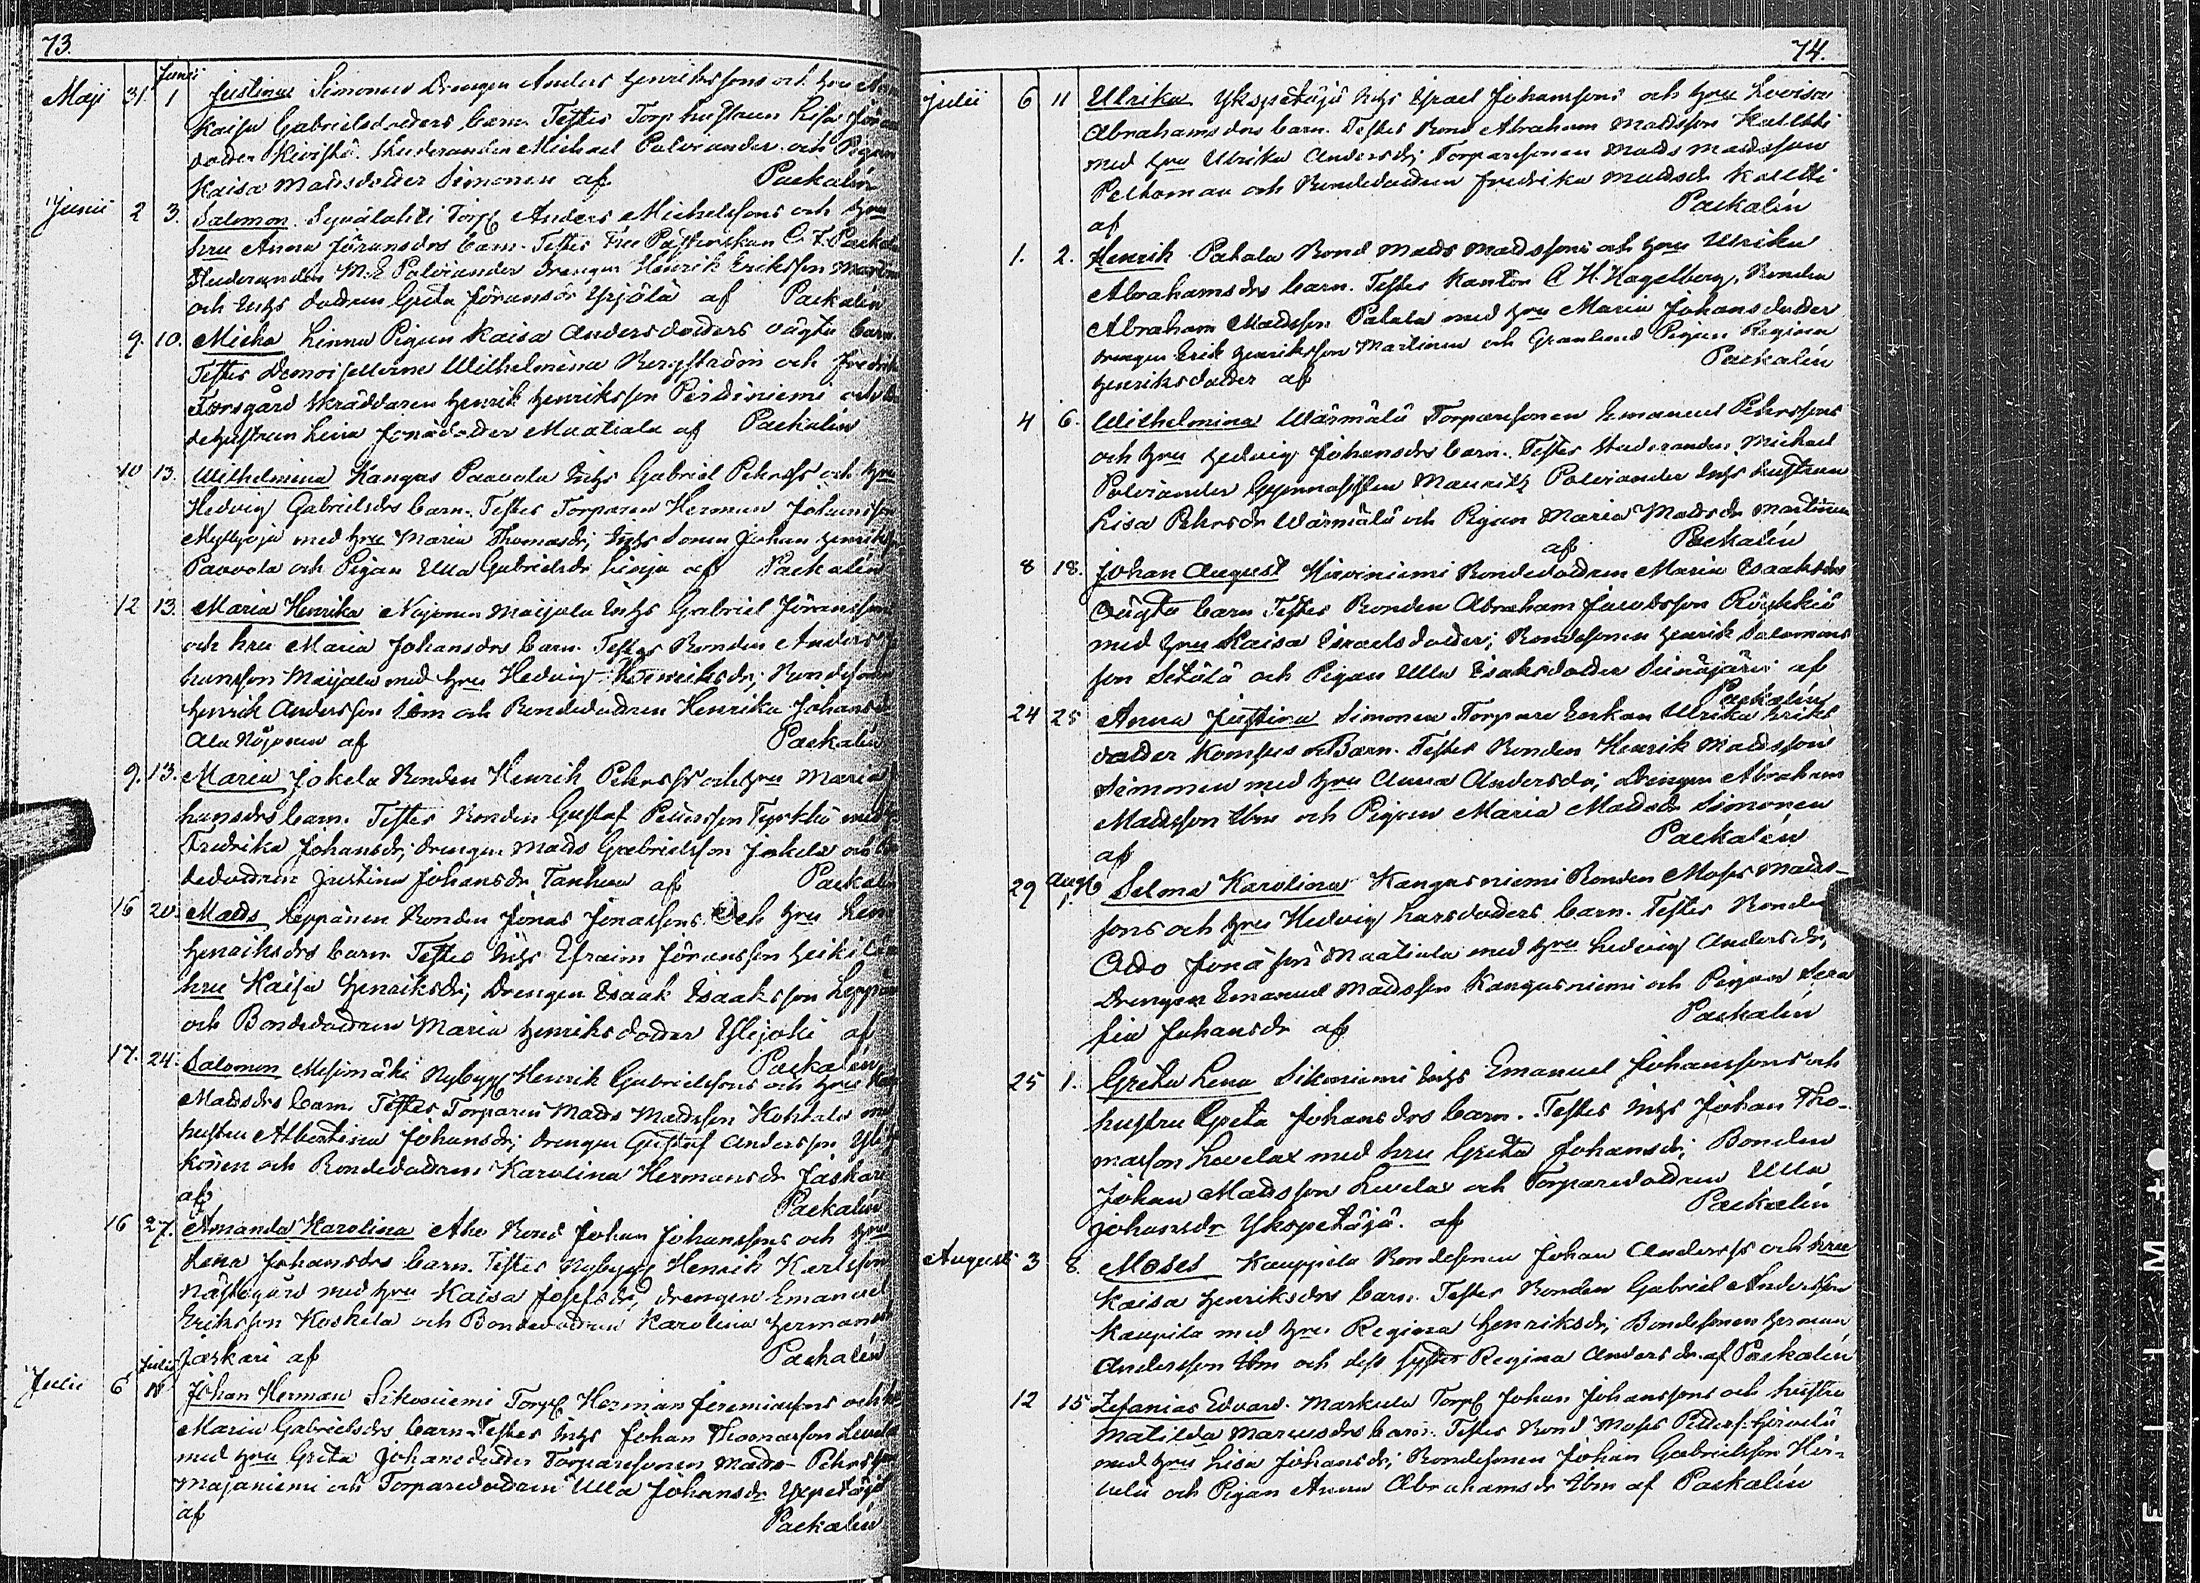 73.
Maji 31. Junii 1 Justina Simonen Drengen Anders Henrikssons och hru
Kaisa Gabrielsdotters barn. Testes Torp hustrun Lisa
dotter Kivistö. Studeranden Michael Polviander och Pigan
Kaisa Madsdotter Simonen af Paekalén
Junii 2 3. Salomon Syväluhti Torp Anders Michelssons och
hru Anna Jöransdrs barn. Testes Fru Pastorskan C. F. Paekalén
Studeranden M. E Polviander Drengen Henrik Eriksson
och Inhs dottren Greta Jöransdr Yrjölä af Paekalén
9. 10. Micho Linna Pigan Kaisa Andersdotters oägta barn.
Testes Demoisellerna Wilhelmina Bergström och
Forsgård Skräddaren Henrik Henriksson Perdiniemi och
dehustrun Lena Jonædotter Maatiala af Paekalén
10 13. Wilhelmina Kangas Paavola Inhs Gabriel Pehrss och hru
Hedvig Gabrielsdrs barn. Testes Torparen Herman Johansson
Myllyoja med hru Maria Thomasdr; Inhs Sonen Johan
Paavola och Pigan Ulla Gabrielsdr Linja af Paekalén
12 13. Maria Henrika Nojonen Maijala Inhs Gabriel Jöranssons
och hru Maria Johansdrs barn. Testes Bonden Anders
hansson Maijala med hru Hedvig Henriksdr; Bondesonen
Henrik Andersson Ibm och Bondedottren Henrika
Ala Nojonen af Paekalén
9. 13. Maria Jokela Bonden Henrik Pehrss och hru Maria
hansdrs barn. Testes Bonden Gustaf Petersson Tyrkkö med
Fredrika Johansdr; Drengen Mads Gabrielsson Jokela och
dedottren Justina Johansdr Tanhua af Paekalén
16 20. Mads Leppänen Bonden Jonas Jonassons och hru Lena
Henriksdrs barn. Testes Inhs Efraim Jöransson
hru Kaisa Henriksdr; Drengen Isaak Isaaksson
och Bondedottren Maria Henriksdotter Ylijoki af
Paekalén
17. 24. Salomon Mesimäki Nybygg Henrik Gabrielssons och hru
Madsdrs barn. Testes Torparen Mads Madsson Kohtala med
hustru Albertina Johansdr; Drengen Gustaf Andersson
könen och Bondedottren Karolina Hermansdr Jaskari
af Paekalén
16 27. Amanda Karolina Aho Bond Johan Johanssons och hru
Lena Johansdrs barn. Testes Nybygg Henrik Karlsson
Nästegård med hru Kaisa Josefsdr, Drengen Emanuel
Eriksson Koskela och Bondedottren Karolina
Jaskari af Paekalén
Julii 6 Julii 11 Johan Herman Sikoniemi Torp Herman Jeremiassons och
Maria Gabrielsdrs barn. Testes Inhs Johan Thomasson
med hru Greta Johansdotter Torparesonen Mads Pehrsson
Majaniemi och Torparedottren Ulla Johansdr Yxpetäjä
af Paekalén
74.
Julii 6 11 Ulrika Ykspetäjä Inhs Israel Johanssons och hru Lovisa
Abrahamsdrs barn. Testes Bond Abraham Madsson Kaletti
med hru Ulrika Andersdr; Torparesonen Mads Madsson
Peltomaa och Bondedottren Fredrika Madsdr Kaletti
af Paekalén
1. 2. Henrik Patala Bond Mads Madssons och hru Ulrika
Abrahamsdrs barn. Testes Kantor C. H. Hagelberg, Bonden
Abraham Madsson Patala med hru Maria Johansdotter
Drengen Erik Henriksson Martinen och Granlund Pigan Regina
Henriksdotter af Paekalén
4 6. Wilhelmina Wärmälä Torparesonen Emanuel Pehrssons
och hru Hedvig Johansdrs barn. Testes Studeranden Michael
Polviander Gymnasisten Mauritz Polviander Inhs hustrun
Lisa Pehrsdr Wärmälä och Pigan Maria Madsdr Martinen
af Paekalén
8 18. Johan August Hirviniemi Bondedottren Maria Isaaksdrs
oägta barn Testes Bonden Abraham Jacobsson Röyhkiö
med hru Kaisa Israelsdotter; Bondesonen Henrik Salomons
son Setälä och Pigan Ulla Isaksdotter Seinäjärvi af
Paekalén
24 25 Anna Justina Simonen Torpare Enkan Ulrika Eriks
dotter Kompes Barn. Testes Bonden Henrik Madsson
Simonen med hru Anna Andersdr; Drengen Abraham
Madsson Ibm och Pigan Maria Madsdr Simonen
af Paekalén
29 Aug 1. Selma Karolina Kangasniemi Bonden Moses Mads-
sons och hru Hedvig Larsdotters barn. Testes Bonden
Odo Jonæson Maatiala med hru Hedvig Andersdr;
Drengen Emanuel Madsson Kangasniemi och Pigan Sera
fia Johansdr af Paekalén
25 1. Greta Lena Sikoniemi Inhs Emanuel Johanssons och
hustru Greta Johansdrs barn. Testes Inhs Johan Tho-
masson Levelax med hru Greta Johansdr; Bonden
Johan Madsson Levelax och Torparedottren Ulla
Johansdr Ykspetäjä. af Paekalén
Augusti 3 8. Moses Kauppila Bondesonen Johan Anderss och hru
Kaisa Henriksdrs barn. Testes Bonden Gabriel Andersson
Kaupila med hru Regina Henriksdr; Bondesonen Herman
Andersson Ibm och dess syster Regina Andersdr. af Paekalén
12 15 Zefanias Edvard. Markula Torp Johan Johanssons och hustru
Matilda Mariusdrs barn. Testes Bond Moses Peders: Hirvelä
med hru Lisa Johansdr; Bondesonen Johan Gabrielsson Hir-
velä och Pigan Anna Abrahamsdr Ibm af Paekalén